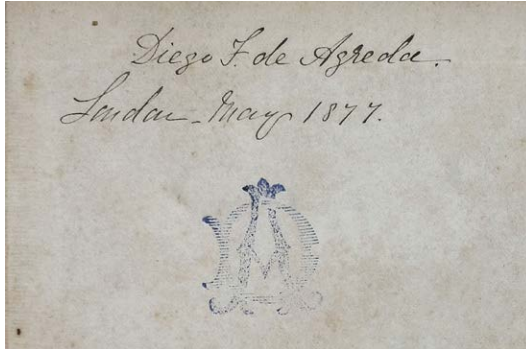 Diego F. de Agreda.
London - May 1877.